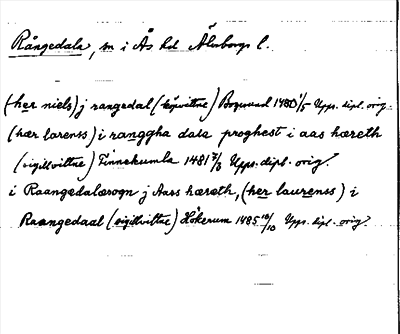 Rångedala, sn i Ås hd Älvsborgs l.
(her niels) j rangedal (köpvittne) Bogesund 1480 1/5 Upps. dipl. orig.
(hær larenss) i ranggha dala proghest i aas hæreth
(sigillvittne) Finnekumla 1481 7/3 Upps. dipl. orig.
i Raangedalæsogn j Aars hæreth, (her laurenss) i
Raangedaal (sigillvittne) Hökerum 1485 10/10 Upps. dipl. orig.